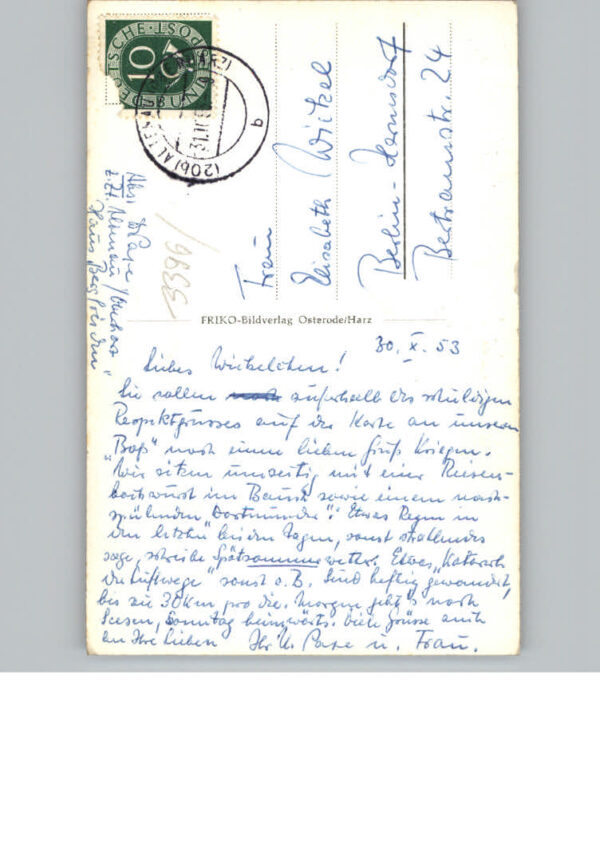 DEUTSCHE BUNDESPOST
10
(20b) ALTENAU
31.10.
b
Frau
Elisabeth Witzel
Berlin-Hermsdorf
Bertramstr. 24
Abs: Pape
z. Zt. Altenau/Oberharz
Haus Bergfrieden"
9835/
FRIKO-Bildverlag Osterode/Harz
30. X. 53
Liebes Witzelchen!
Sie sollen außerhalb des schuldigen
Respektgrusses auf der Karte an unseren
"Boß" noch einen lieben Gruß kriegen.
Wir sitzen mit einer Riesen-
bockwurst im Bauch sowie einem nach-
spülenden "Dortmunder". Etwas Regen in
den letzten beiden Tagen, sonst strahlendes
sage, schreibe Spätsommerwetter. Etwas "Katarrh
der Luftwege" sonst o.B. Sind heftig gewandert,
bis zu 30 km pro die. Morgen geht's nach
Seesen, Sonntag heimwärts. Viele Grüsse auch
an Ihre Lieben Ihr K. Pape u. Frau.